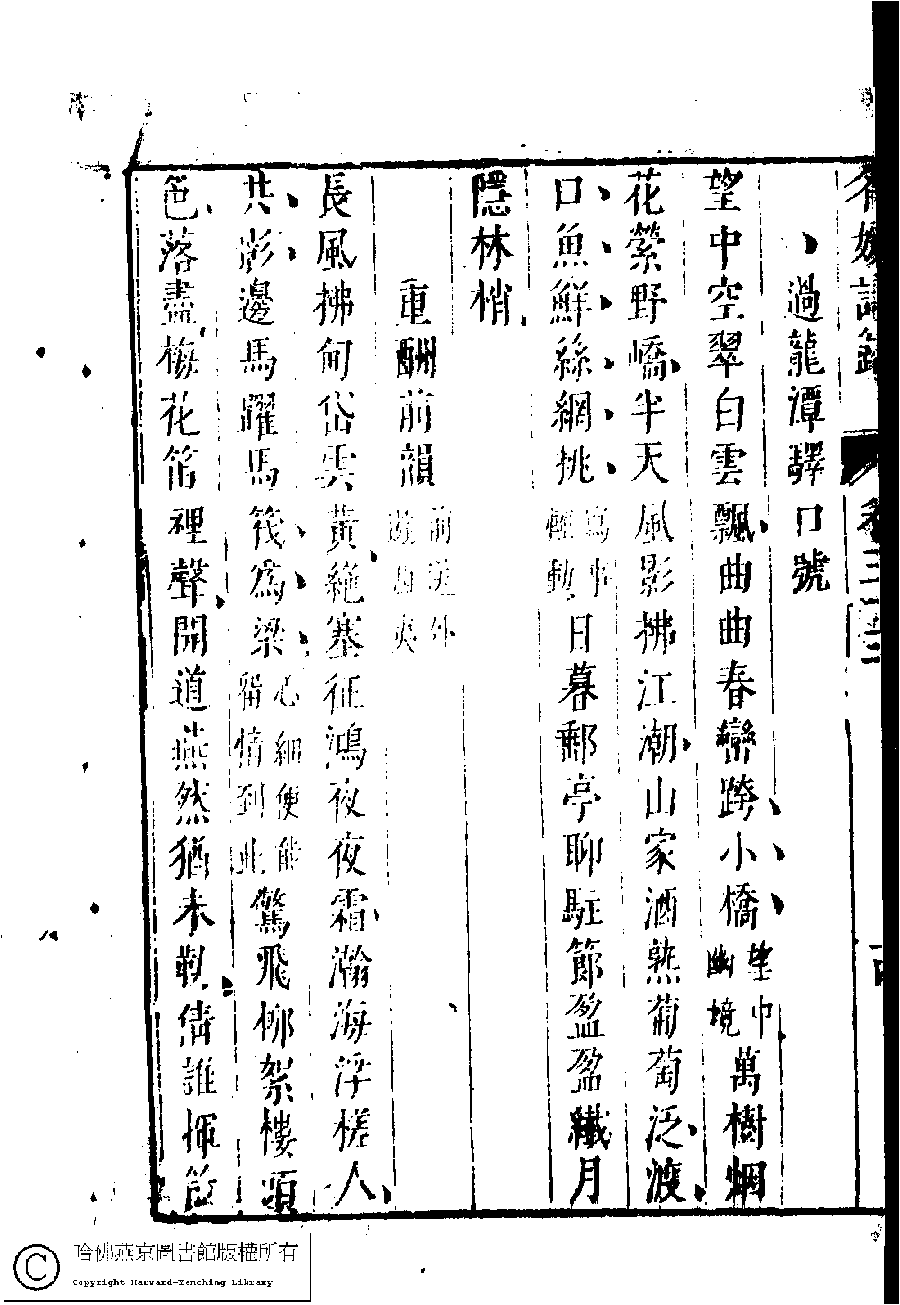 過龍潭驛口號
望中空翠白雲飄曲曲春巒跨小橋望中幽境萬樹烟
花縈野嶠半天風影拂江潮山家酒熟葡萄泛渡
口魚鮮絲網挑寫事輕動日暮郵亭聊駐節盈盈纖月
隱林梢
重酬前韻
長風拂甸岱雲黃絕塞征鴻夜夜霜瀚海浮槎人
共影邊馬躍馬筏為梁心細便能留情到此驚飛柳絮樓頭
色落盡梅花笛裡聲聞道燕然猶未勒倩誰揮筯
哈佛燕京圖書館版權所有
Copyright Harvard-Yenching Library